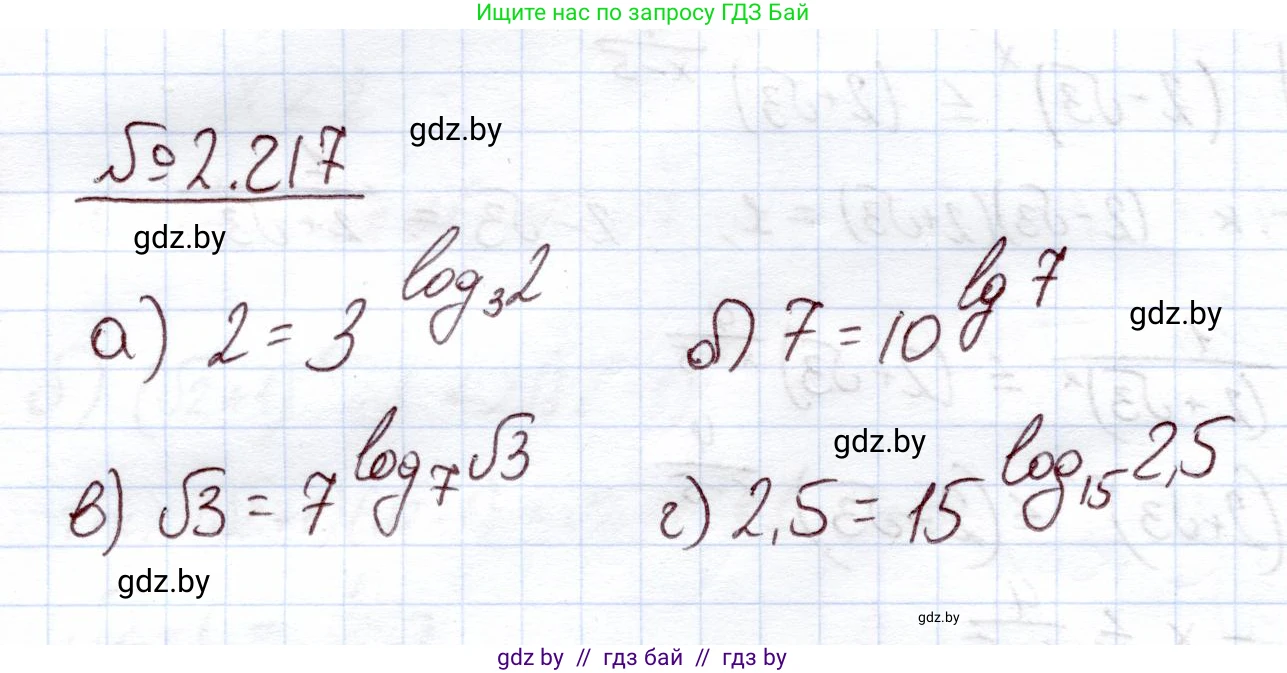 Ищите нас по запросу ГДЗ Бай
№2.217 gdz.by
gdz.by
а) 2 = 3^{log_3 2} б) 7 = 10^{lg 7} gdz.by
gdz.by
в) √3 = 7^{log_7 √3} г) 2,5 = 15^{log_{15} 2,5}
gdz.by
gdz.by
gdz by // гдз бай // гдз by